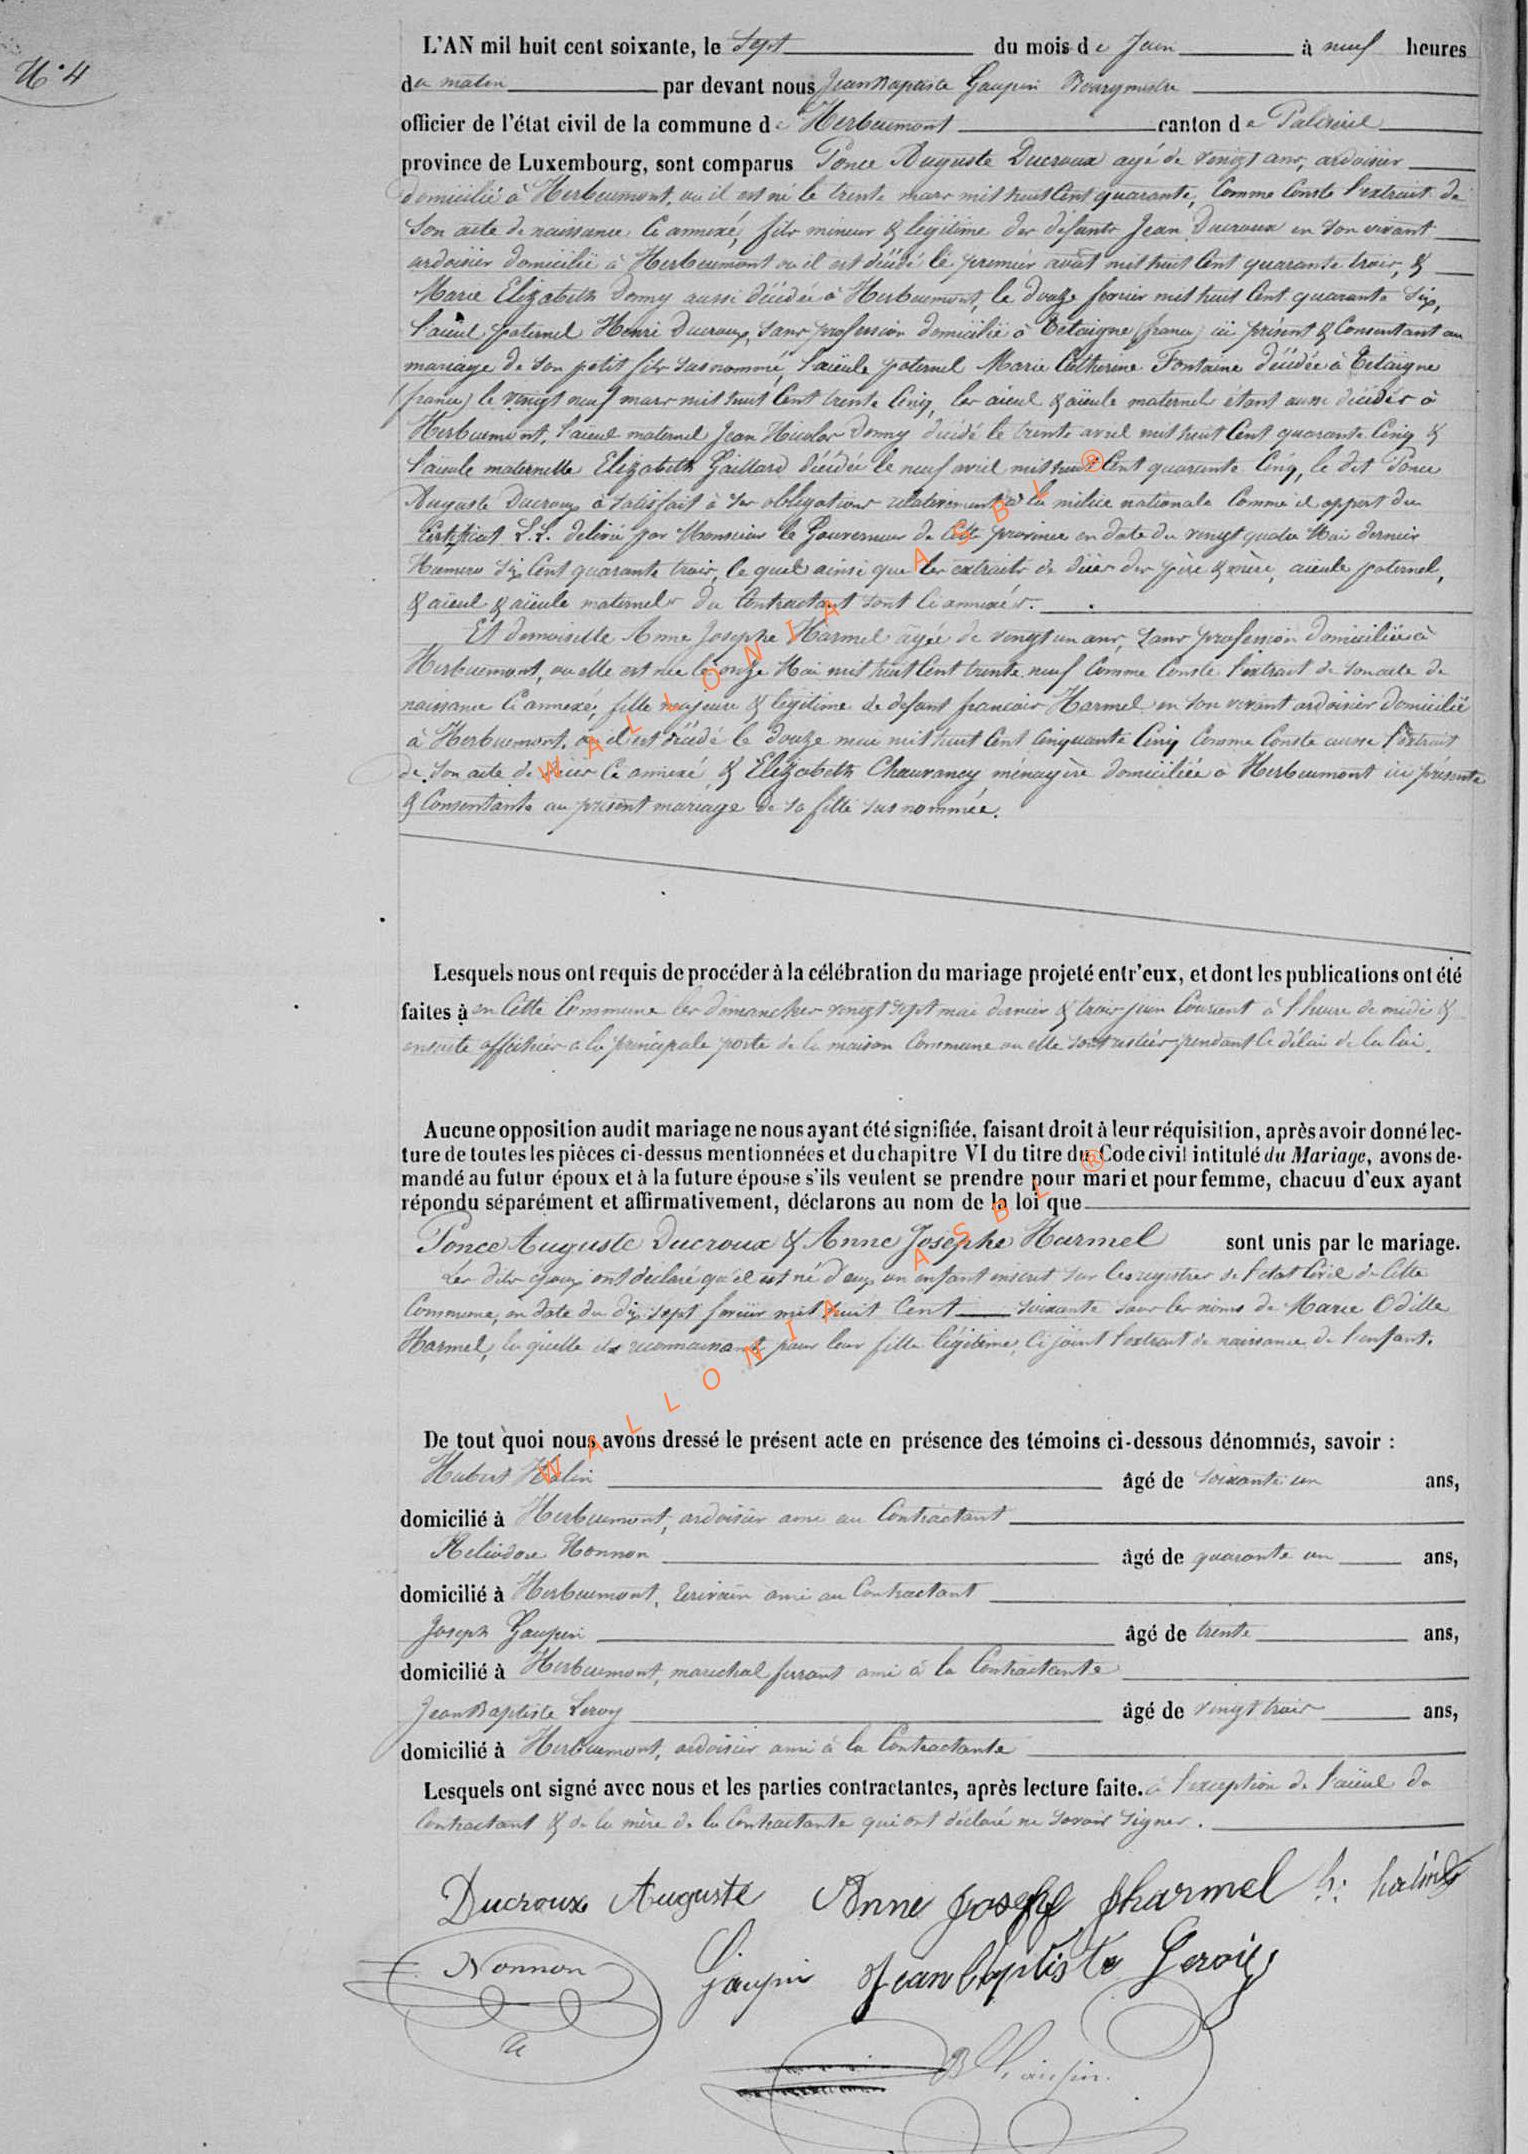 N° 4
L'AN mil huit cent soixante, le Sept du mois de Juin à neuf heures
du matin par devant nous Jean Baptiste Gaupin Bourgmestre
officier de l'état civil de la commune de Herbeumont canton de Paliseul
province de Luxembourg, sont comparus Ponce Auguste Ducroux agé de vingt ans, ardoisier
domicilié à Herbeumont, ou il est né le trente mars mil huit Cent quarante, Comme Conste l'extrait de
Son acte de naissance Ci annexé, fils mineur & légitime des défunts Jean Ducroux en son vivant
ardoisier domicilié à Herbeumont ou il est décédé le premier août mil huit Cent quarante trois, &
Marie Elizabeth Donny aussi décédée à Herbeumont, le douze fevrier mil huit Cent quarante Six,
l'aïeul paternel Henri Ducroux, Sans profession domicilié à Tetaigne (france) ici présent & Consentant au
mariage de Son petit fils susnommé, l'aïeule paternel Marie Catherine Fontaine décédée à Tetaigne
(france) le vingt neuf mars mil huit Cent trente Cinq, les aïeul & aïeule maternels étant aussi décédés à
Herbeumont, l'aïeul maternel Jean Nicolas Donny décédé le trente avril mil huit Cent quarante Cinq &
l'aïeule maternelle Elizabeth Gaillard décédée le neuf avril mil huit Cent quarante Cinq, le dit Ponce
Auguste Ducroux a Satisfait à Ses obligations relativement à la milice nationale Comme il appert du
Certificat L.L. délivré par Monsieur le Gouverneur de Cette province en date du vingt quatre Mai dernier
Numero Six Cent quarante trois, le quel ainsi que les extraits de décès des père & mère, aïeule paternel,
& aïeul & aïeule maternels du Contractant Sont Ci annexés.
Et demoiselle Anne Josephe Harmel âgée de vingt un ans, Sans profession domiciliée à
Herbeumont, ou elle est née le onze Mai mil huit Cent trente neuf Comme Conste l'extrait de Son acte de
naissance Ci annexé, fille majeure & légitime de défunt francois Harmel en Son vivant ardoisier domicilié
à Herbeumont, ou il est décédé le douze mai mil huit Cent Cinquante Cinq Comme Conste aussi l'extrait
de Son acte de décès Ci annexé & Elizabeth Chauvancy ménagère domiciliée à Herbeumont ici présente
& Consentante au présent mariage de Sa fille Sus nommée.
Lesquels nous ont requis de procéder à la célébration du mariage projeté entr'eux, et dont les publications ont été
faites à en Cette Commune les dimanches vingt Sept mai dernier & trois juin Courant à l'heure de midi &
ensuite affichées a la principale porte de la maison Commune ou elle Sont restées pendant le délai de la loi.
Aucune opposition audit mariage ne nous ayant été signifiée, faisant droit à leur réquisition, après avoir donné lec-
ture de toutes les pièces ci-dessus mentionnées et du chapitre VI du titre du Code civil intitulé du Mariage, avons de-
mandé au futur époux et à la future épouse s'ils veulent se prendre pour mari et pour femme, chacuu d'eux ayant
répondu séparément et affirmativement, déclarons au nom de la loi que
Ponce Auguste Ducroux & Anne Josephe Harmel sont unis par le mariage.
Les dits époux ont déclaré qu'il est né d'eux un enfant inscrit sur les registres de l'état Civil de Cette
Commune, en date du dix sept fevrier mil huit Cent soixante sous les noms de Marie Odille
Harmel, la quelle ils reconnaissent pour leur fille légitime, Ci joint l'extrait de naissance de l'enfant.
De tout quoi nous avons dressé le présent acte en présence des témoins ci-dessous dénommés, savoir :
Hubert Halin âgé de Soixante un ans,
domicilié à Herbeumont, ardoisier ami au Contractant
Heliodore Nonnon âgé de quarante un ans,
domicilié à Herbeumont, Ecrivain ami au Contractant
Joseph Gaupin âgé de trente ans,
domicilié à Herbeumont, marechal ferrant ami à la Contractante
Jean Baptiste Leroy âgé de vingt trois ans,
domicilié à Herbeumont, ardoisier ami à la Contractante
Lesquels ont signé avec nous et les parties contractantes, après lecture faite. à l'exception de l'aïeul du
Contractant & de la mère de la Contractante qui ont déclaré ne Savoir Signer.
Ducroux Auguste Anne Josephe harmel h: halin
Nonnon Gaupin Jean Baptiste Leroy
JB Gaupin
WALLONIA ASBL ®
WALLONIA ASBL ®